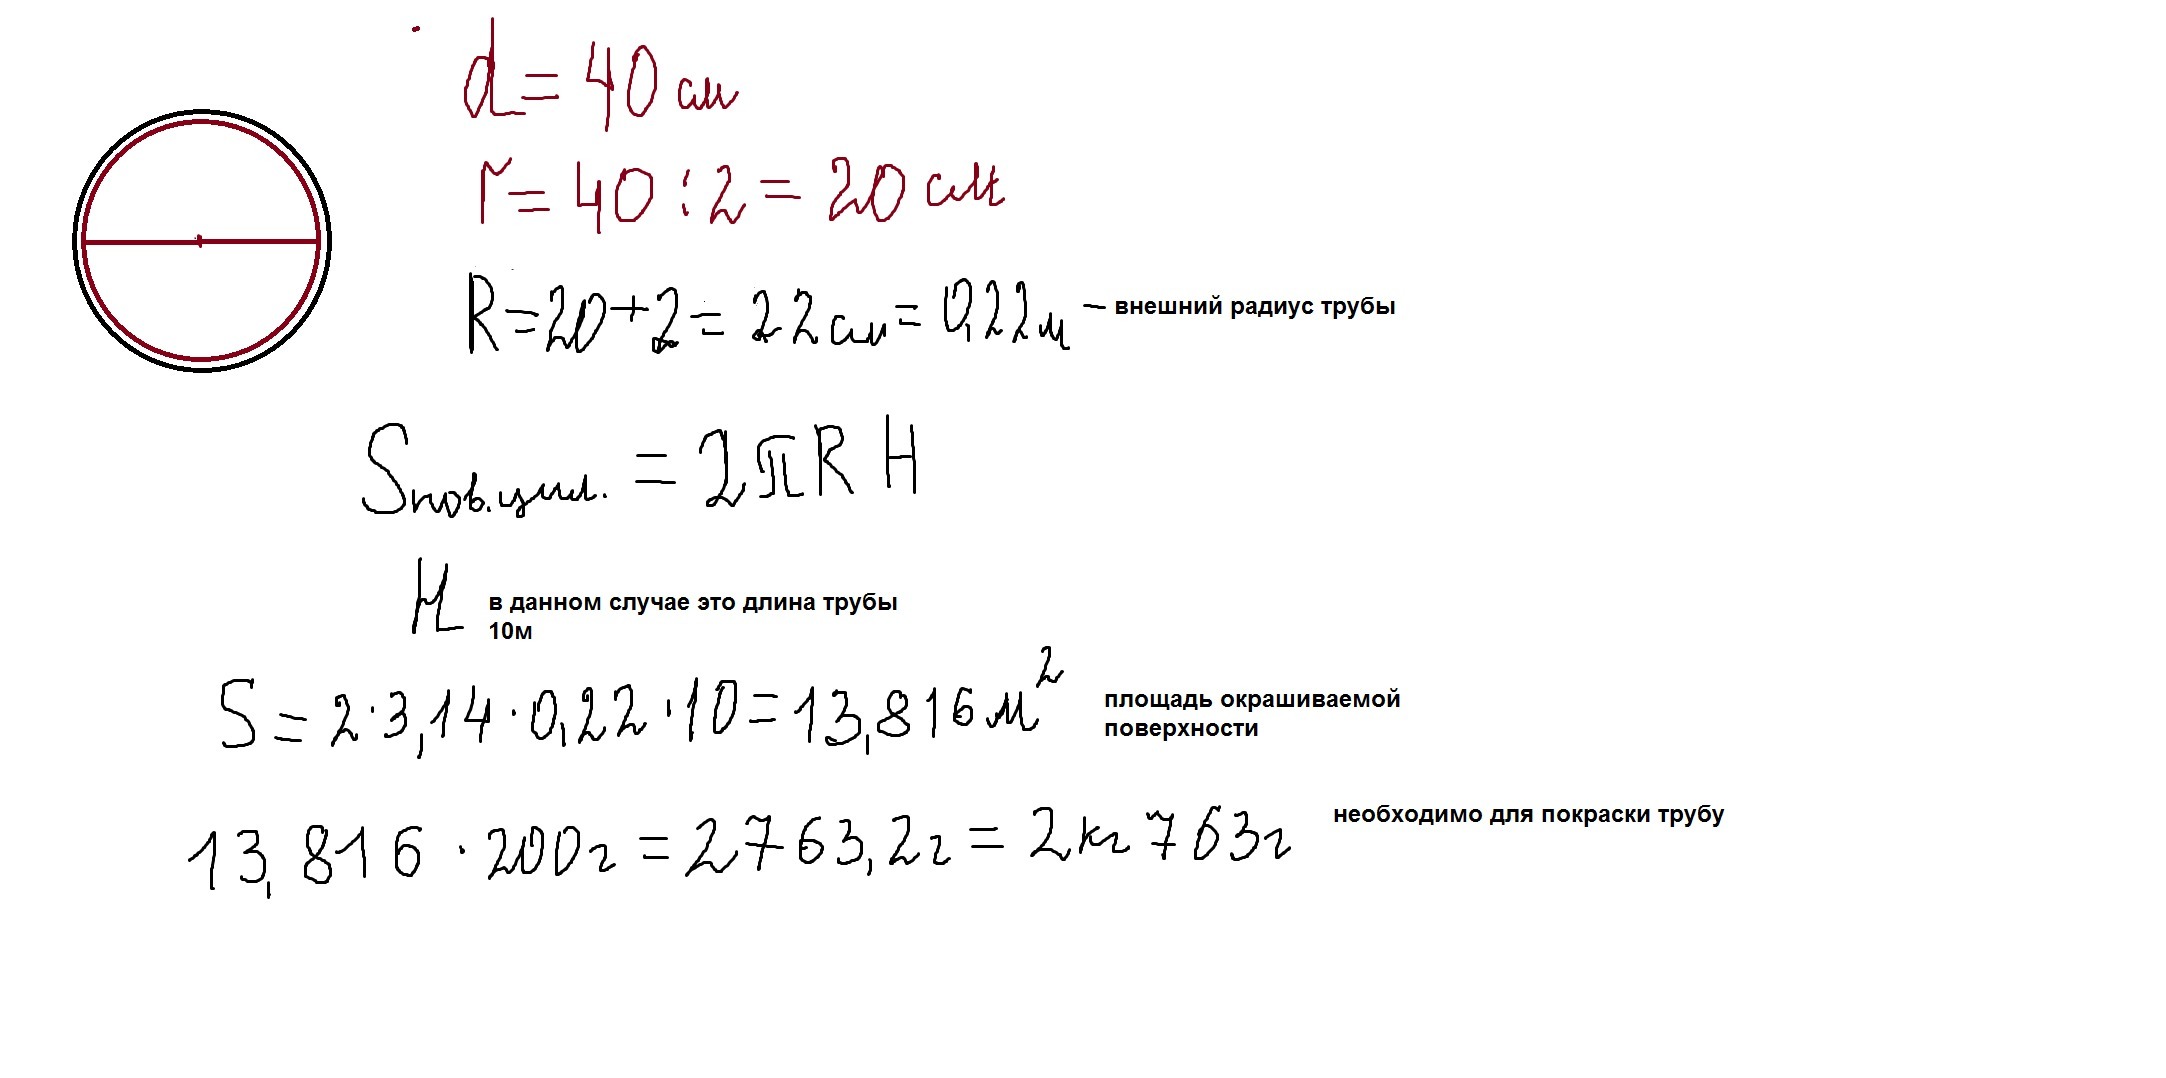 d = 40 см
r = 40 : 2 = 20 см
R = 20 + 2 = 22 см = 0,22 м — внешний радиус трубы
Sпов.цил. = 2πRH
H в данном случае это длина трубы
10м
S = 2·3,14·0,22·10 = 13,816 м² площадь окрашиваемой
поверхности
13,816 · 200г = 2763,2г = 2кг 763г необходимо для покраски трубу